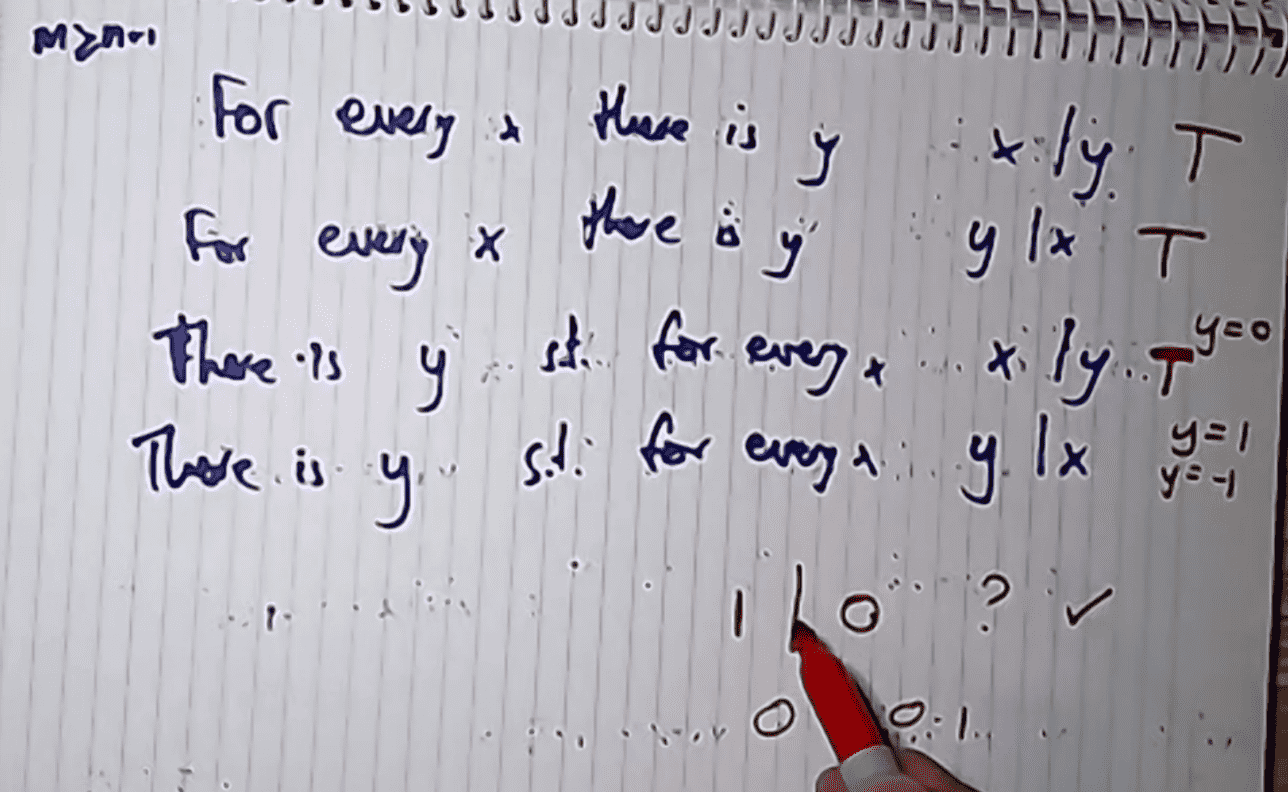 m≥n-1
For every x there is y x|y T
For every x there is y y|x T
There is y s.t. for every x x|y T y=0
There is y s.t. for every x y|x y=1 y=-1
1|0 ? ✓
0 0·1